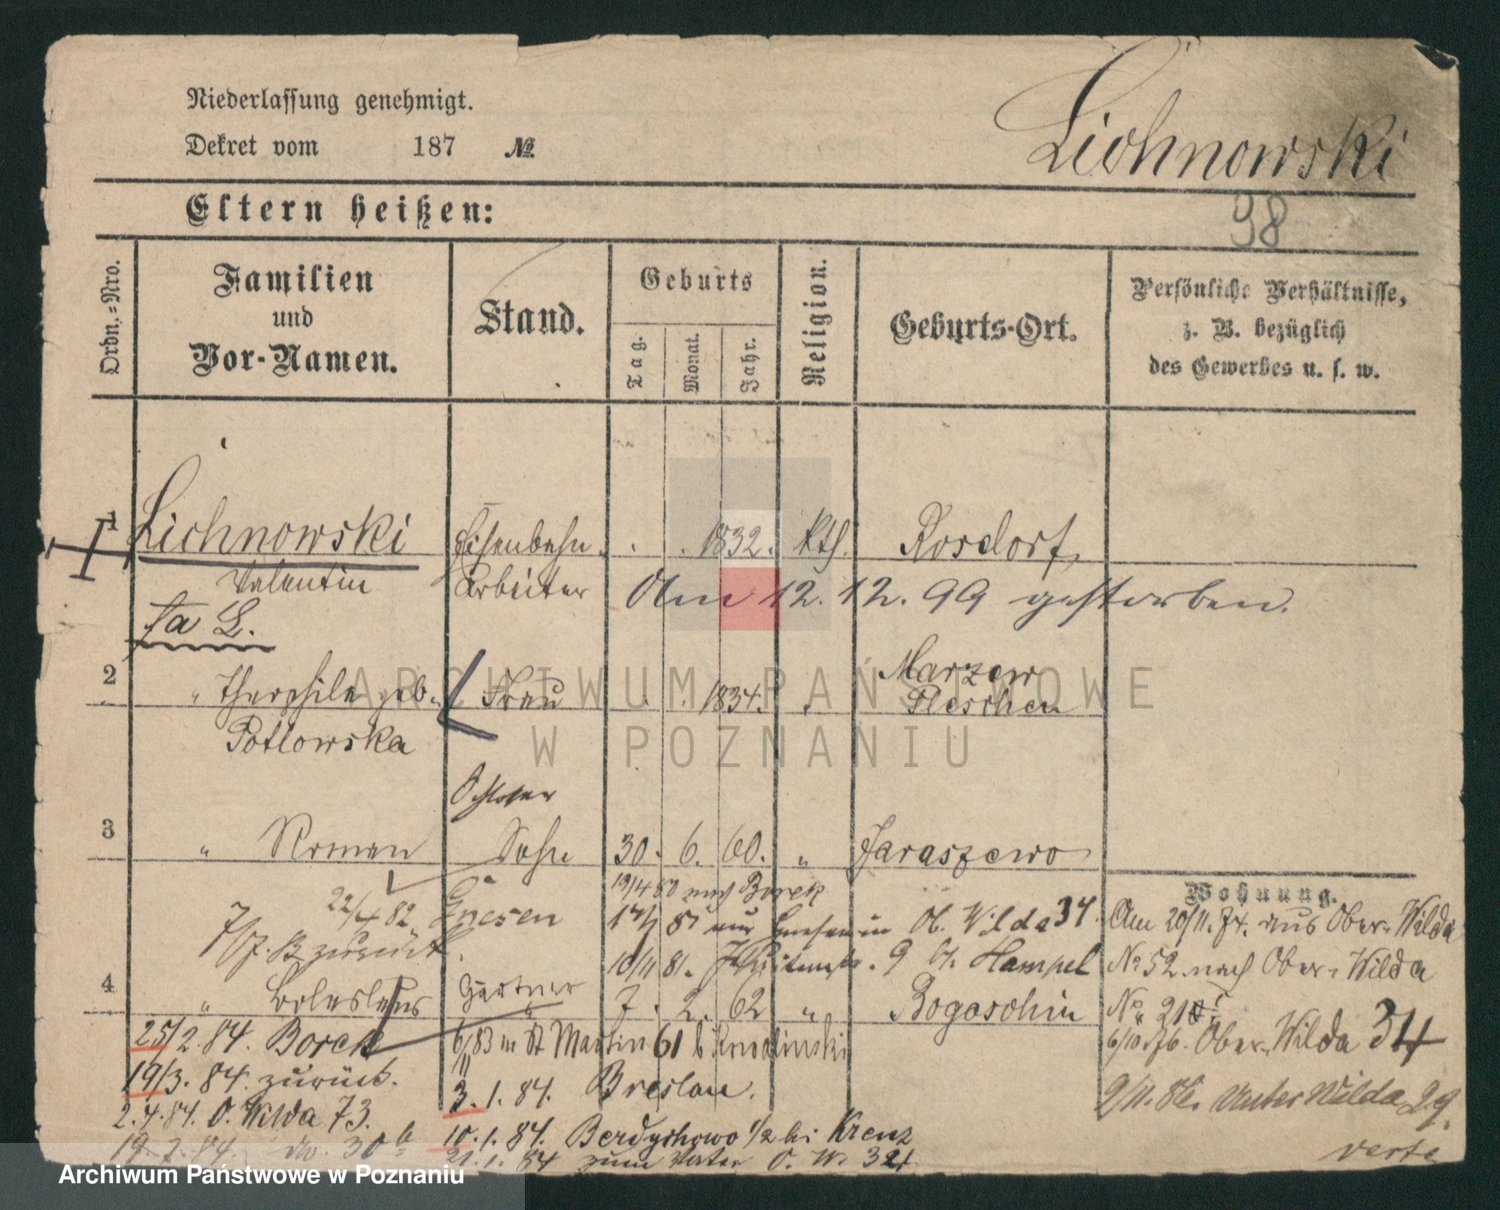 Niederlassung genehmigt.
Dekret vom 187 №
Lichnowski
Eltern heißen:
98
Ordn.-Nro.
Familien und Vor-Namen.
Stand.
Geburts
Tag.
Monat.
Jahr.
Religion.
Geburts-Ort.
Persönliche Verhältnisse,
z. B. bezüglich
des Gewerbes u. s. w.
1 Lichnowski Eisenbahn . . 1832. kth. Rosdorf
Valentin Arbeiter Am 12. 12. 99 gestorben.
fa L.
Marzew
2 " Theophila geb. Frau . . 1834. Pleschen
Potlowska
Schlosser
3 " Roman Sohn 30. 6. 60. " Jaraszewo
Wohnung.
22/4 82 Gnesen
19/4 80 nach Borek
O. Wilda 34.
Am 20/11. 74. aus Ober-Wilda
zurück.
10/11 81. 9 b. Hampel
No 52 nach Ober-Wilda
4 " Boleslaus Gärtner 7. 2. 62 " Pogoschin
No 21
25/2. 84. Borek
6/83 in St Martin 61 b.
6/10. 76. Ober-Wilda 34
19/3. 84. zurück.
3. 1. 84. Breslau.
Unter Wilda 29.
2. 4. 84. O. Wilda 73.
10. 1. 84. 1/2 bei Krenz
19. 7. 84. do. 30 b
21. 1. 84 zum Vater O. W. 34
verte
ARCHIWUM PAŃSTWOWE
W POZNANIU
Archiwum Państwowe w Poznaniu